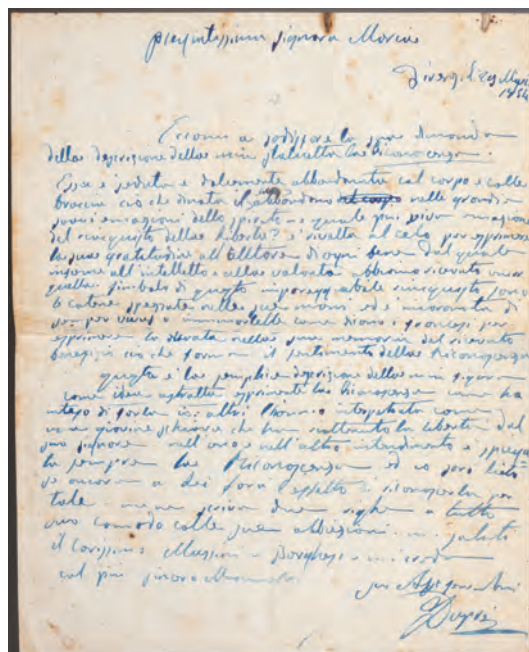 signora Marcia
Eccomi a sodisfare la sua dimanda
della descrizione della mia statuetta la Riconoscenza.
Essa è seduta e dolcemente abbandonata col corpo e colle
braccia ciò che dinota l'abbandono del corpo nelle grandi
emozioni dello spirito e quale più viva emozione
del riacquisto della libertà? è rivolta al cielo per esprimere
la sua gratitudine all' di ogni bene dal quale
insieme all'intelletto e alla volontà abbiamo ricevuto
quella simbolo di questo riacquisto sono
le catene spezzate nelle sue mani, ed è incoronata di
sempre vivi o immortelle come diano i francesi per
esprimere la nella sua memoria del ricevuto
benefizio ciò che forma il sentimento della Riconoscenza
questa è la semplice descrizione della mia figura
come idea astratta la Riconoscenza come ho
inteso di farla io: altri l'hanno interpretata come
una giovine schiava che ha riottenuta la libertà dal
suo signore nell'uno e nell'altro intendimento spiega
sempre la Riconoscenza ed io sarò lieto
se ancora a lei farà effetto di riconoscerla per
tale. me ne scriva due righe a tutto
suo comodo colle sue. mi saluti
il carissimo Mussini e Borghesi e mi creda
col più
suo
Duprè